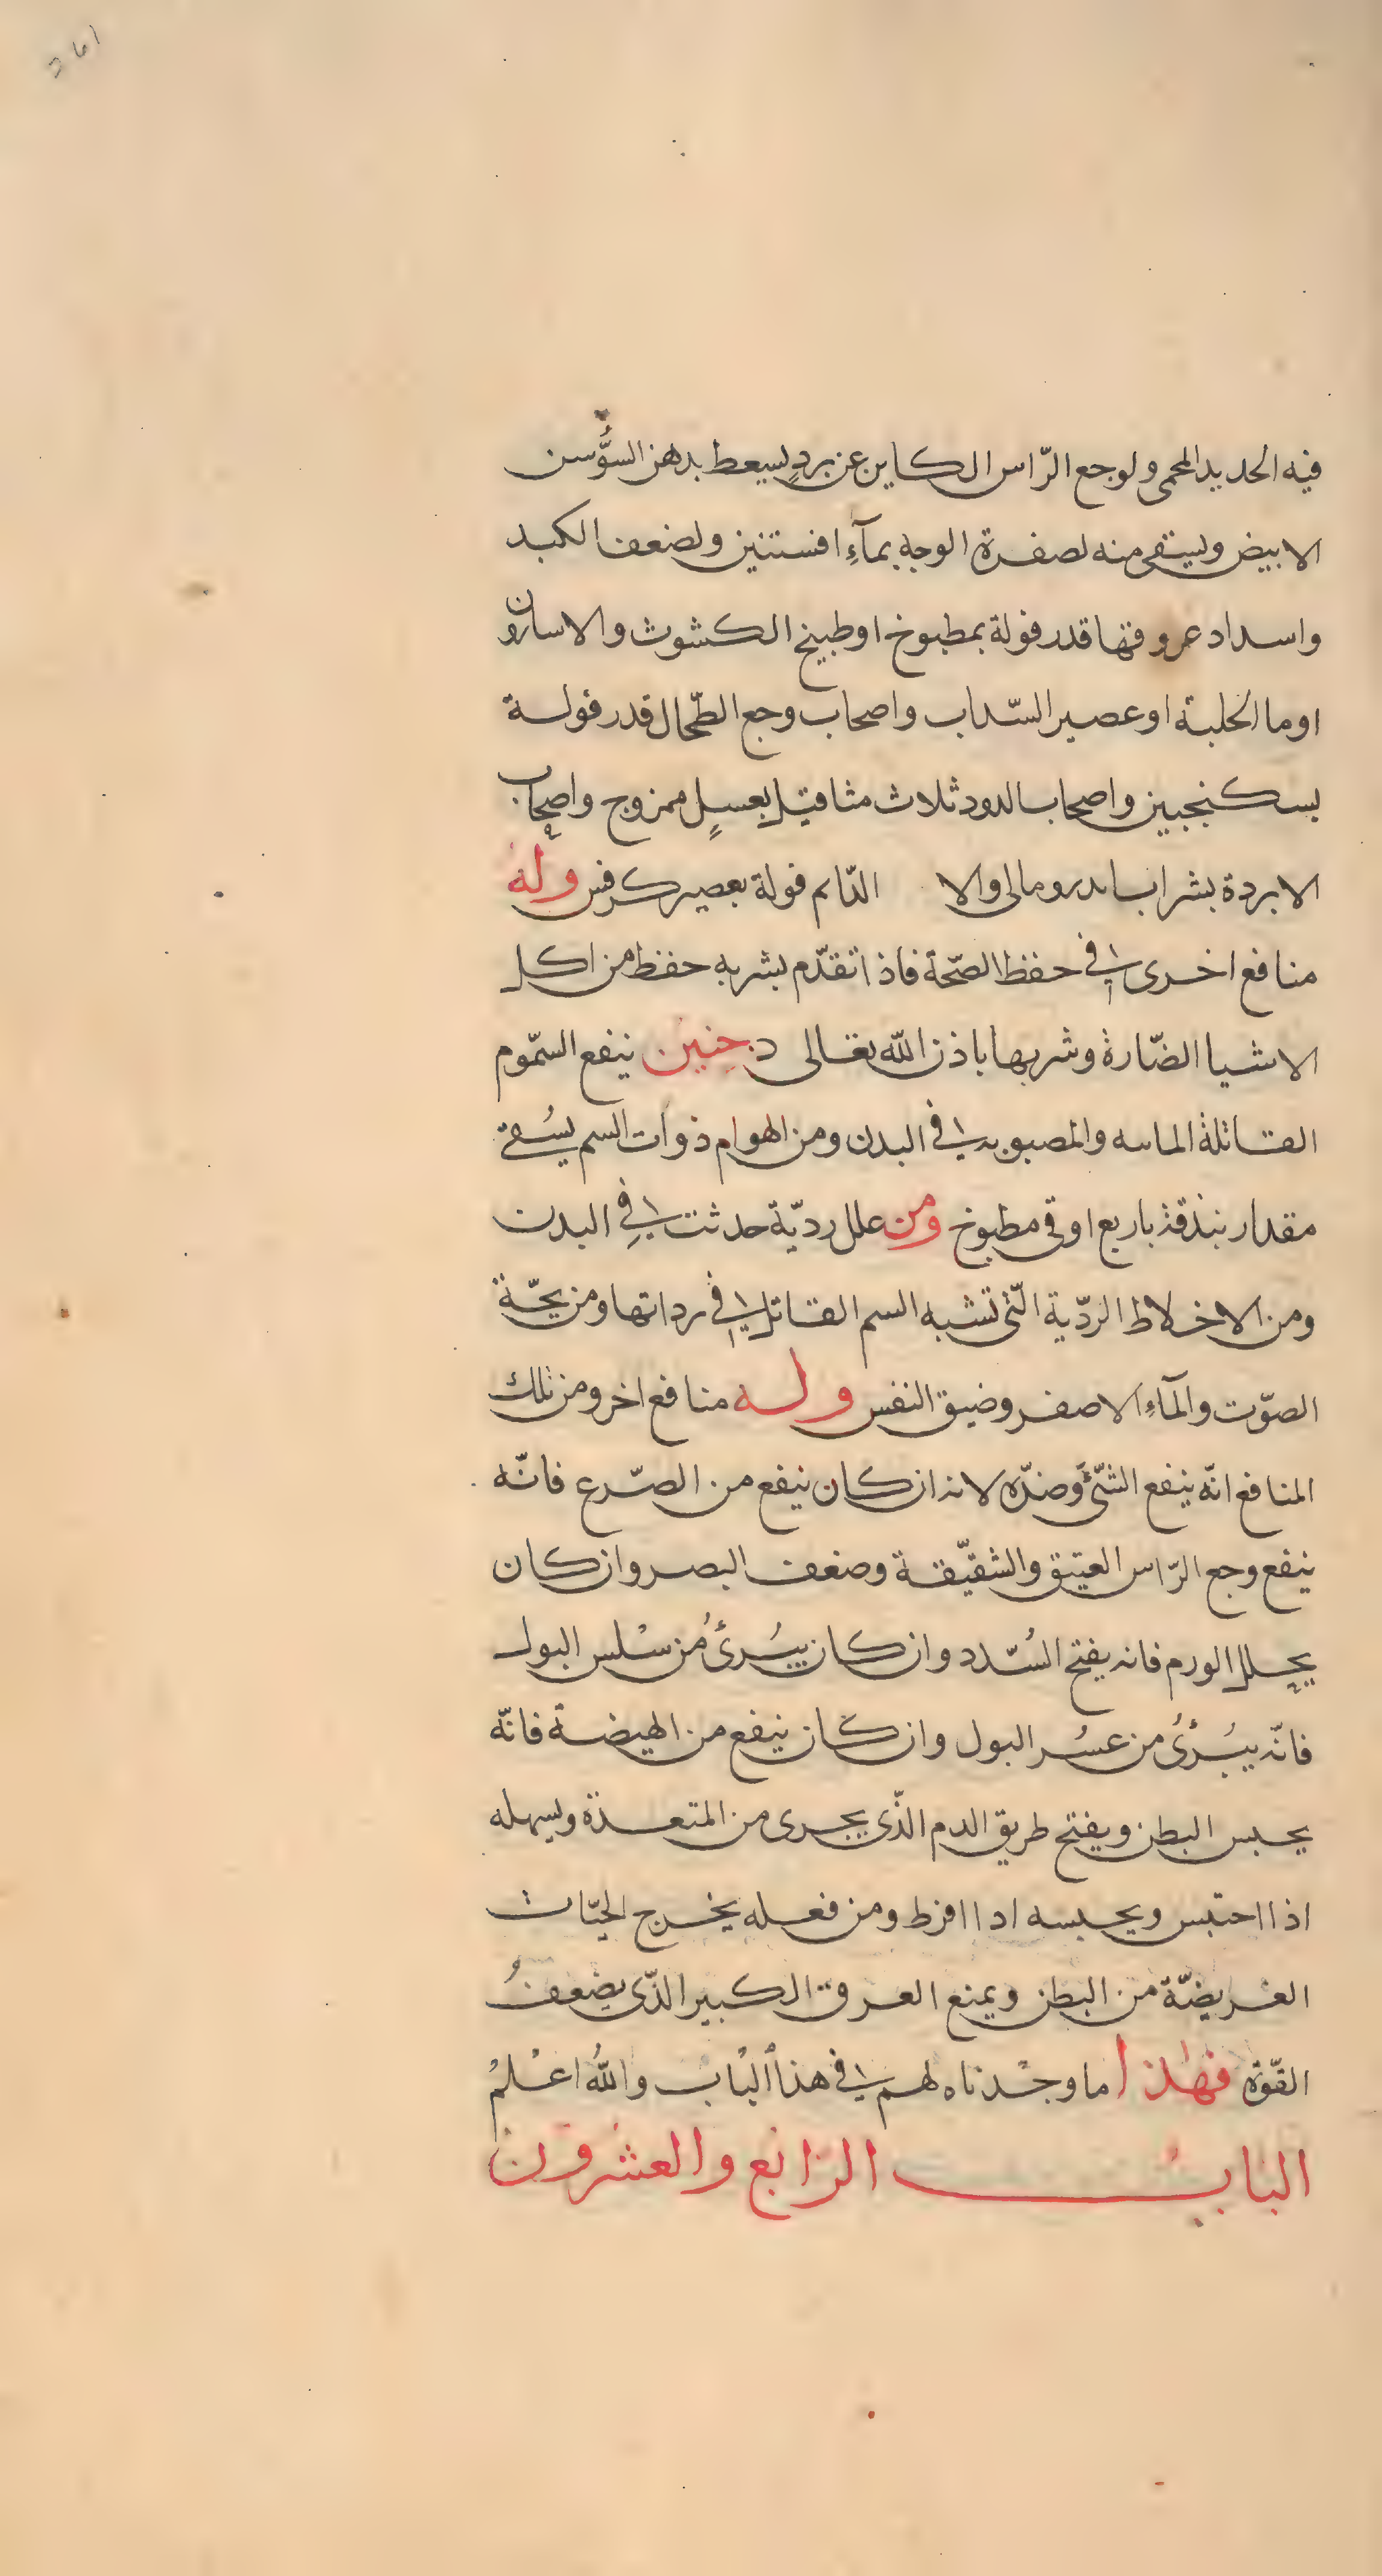 فيه الحديد المحمى ولوجع الرّاس الكاين عن بردٍ يسعط بدهن السوّسن
الابيض ويسقى منه لصفرة الوجه بمآءِ افسنتين ولضعف الكبد
واسداد عروقها قدر فولة بمطبوخ او طبيخ الكشوث والاسارون
او ما الحلبة او عصير السّداب واصحاب وجع الطّحال قدر فولة
بسكنجبين واصحاب الدود ثلاث مثاقيل بعسلٍ ممزوج واصحاب
الابردة بشراب ايدرومالى والا الدّايم فولة بعصير كرفس وله
منافع اخرى في حفظ الصّحة فاذا تقدّم بشربه حفظ من اكل
الاشيا الضّارة وشربها باذن الله تعالى د حنين ينفع السمّوم
القاتلة والمصبوبه في البدن ومن الهوام ذوات السم يُسقى
مقدار بندقة باربع اوقى مطبوخ ومن علل رديّة حدثت في البدن
ومن الاخلاط الرّدية الّتى تشبه السم القاتل في رداتها ومن بحّة
الصّوت والمآءِ الاصفر وضيق النفس وله منافع اخر ومن تلك
المنافع انّه ينفع الشّئ وضدّه لانه ان كان ينفع من الصّرع فانّه
ينفع وجع الرّاس العتيق والشقيّقة وضعف البصر وان كان
يحلل الورم فانه يفتح السُّدد وان كان يُبرئُ من سُلس البول
فانّه يُبرئُ من عسُر البول وان كان ينفع من الهيضة فانّه
يحبس البطن ويفتح طريق الدم الذّى يجرى من المتعدة ويسهله
اذا احتبس ويحبسه ادا افرط ومن فعله يخرج الحيّات
العريضّة من البطن ويمنع العرق الكبير الذّى يضعفُ
القّوة فهذا ما وجدناه لهم في هذا الباب والله اعلمُ
الباب الرابع والعشرون